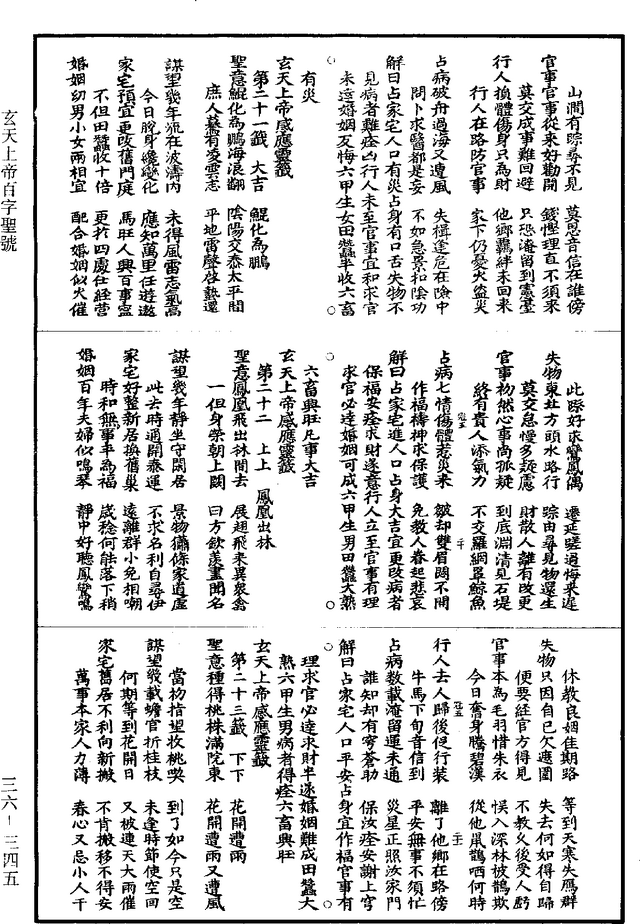 山澗有踪尋不見　莫思音信在誰傍
官事官事從來好勸開　錢慳理直不須來
莫交成事難回避　只恐淹留到憲臺
行人換體傷身只為財　他鄉羈絆未回來
行人在路防官事　家下仍憂火盜災
占病破舟過海又遭風　失楫逢危在險中
問卜求醫都是妄　不如急扣陰功
解曰占家宅人口有災占身有口舌失物不
見病者難痊凶行人未至官事宜和求官
未達婚姻反悔六甲生女田蠶半收六畜
有災
玄天上帝感應靈籤
第二十一籤　大吉　鯤化為鵬
聖意鯤化為鵬海浪翻　陰陽交泰太平間
庶人驀有凌雲志　平地雷聲啓蟄還
謀望幾年流在波濤內　未得風雷志氣高
今日脫身纔變化　應知萬里任遊遨
家宅預宜更改舊門庭　馬旺人興百事寧
不但田蠶收十倍　更於四處任經營
婚姻幼男小女兩相宜　配合婚姻似火催
此踪好求鸞鳳偶　遷延蹉過悔來遲
失物東北方頭水路行　踪由尋見物還生
莫交怠慢多疑慮　財散人離有改更
官事初然心事尚孤疑　到底淵清見石堤
終有貴人添氣力　不交羅網罩鯨魚
占病七情傷體惹災來　皺却雙眉闊不開
作福禱神求保護　免教人眷起悲哀
解曰占家宅進人口占身大吉宜更改病者
保福安痊求財遂意行人立至官事有理
求官必達婚姻可成六甲生男田蠶大熟
六畜興旺凡事大吉
玄天上帝感應靈籤
第二十二　上上　鳳凰出林
聖意鳳凰飛出林間去　展翅飛來異衆禽
一但身榮朝上闕　曰方欽羨盡聞名
謀望幾年靜坐守閑居　景物蕭條家道虛
此去時通開泰運　不求名利自尋伊
家宅好整新居換舊巢　遠離群小免相嘲
時和無事年為福　歲稔何能落下稍
婚姻百年夫婦似鳴琴　靜中好聽鳳鸞鳴
休教良姻佳期路　等到天寒失鴈群
失物只因自己欠遮圍　失去何如得自歸
便要經官方得見　不教久後受人虧
官事本為毛羽惜朱衣　悞入深林被鵲欺
今日奮身騰碧漢　從他鼠鵲哂何時
行人去人歸後促行裝　離了他鄉在路傍
牛馬下旬音信到　平安無事不須忙
占病數載淹留運未通　災星正照汝家門
誰知却有穹蒼助　保汝痊安謝上穹
解曰占家宅人口平安占身宜作福官事有
理求官必達求財半遂婚姻難成田蠶大
熟六甲生男病者得痊六畜興旺
玄天上帝感應靈籤
第二十三籤　下下　花開遭雨
聖意種得桃株滿院東　花開遭雨又遭風
當初指望收桃　到了如今只是空
謀望幾載蟾宮折桂枝　未逢時節使空回
何期等到花開日　又被連天大雨催
家宅舊居不利向新搬　不肯搬移不得安
萬事本家人力薄　春心又忌小人干
玄天上帝百字聖號
三六—三四五